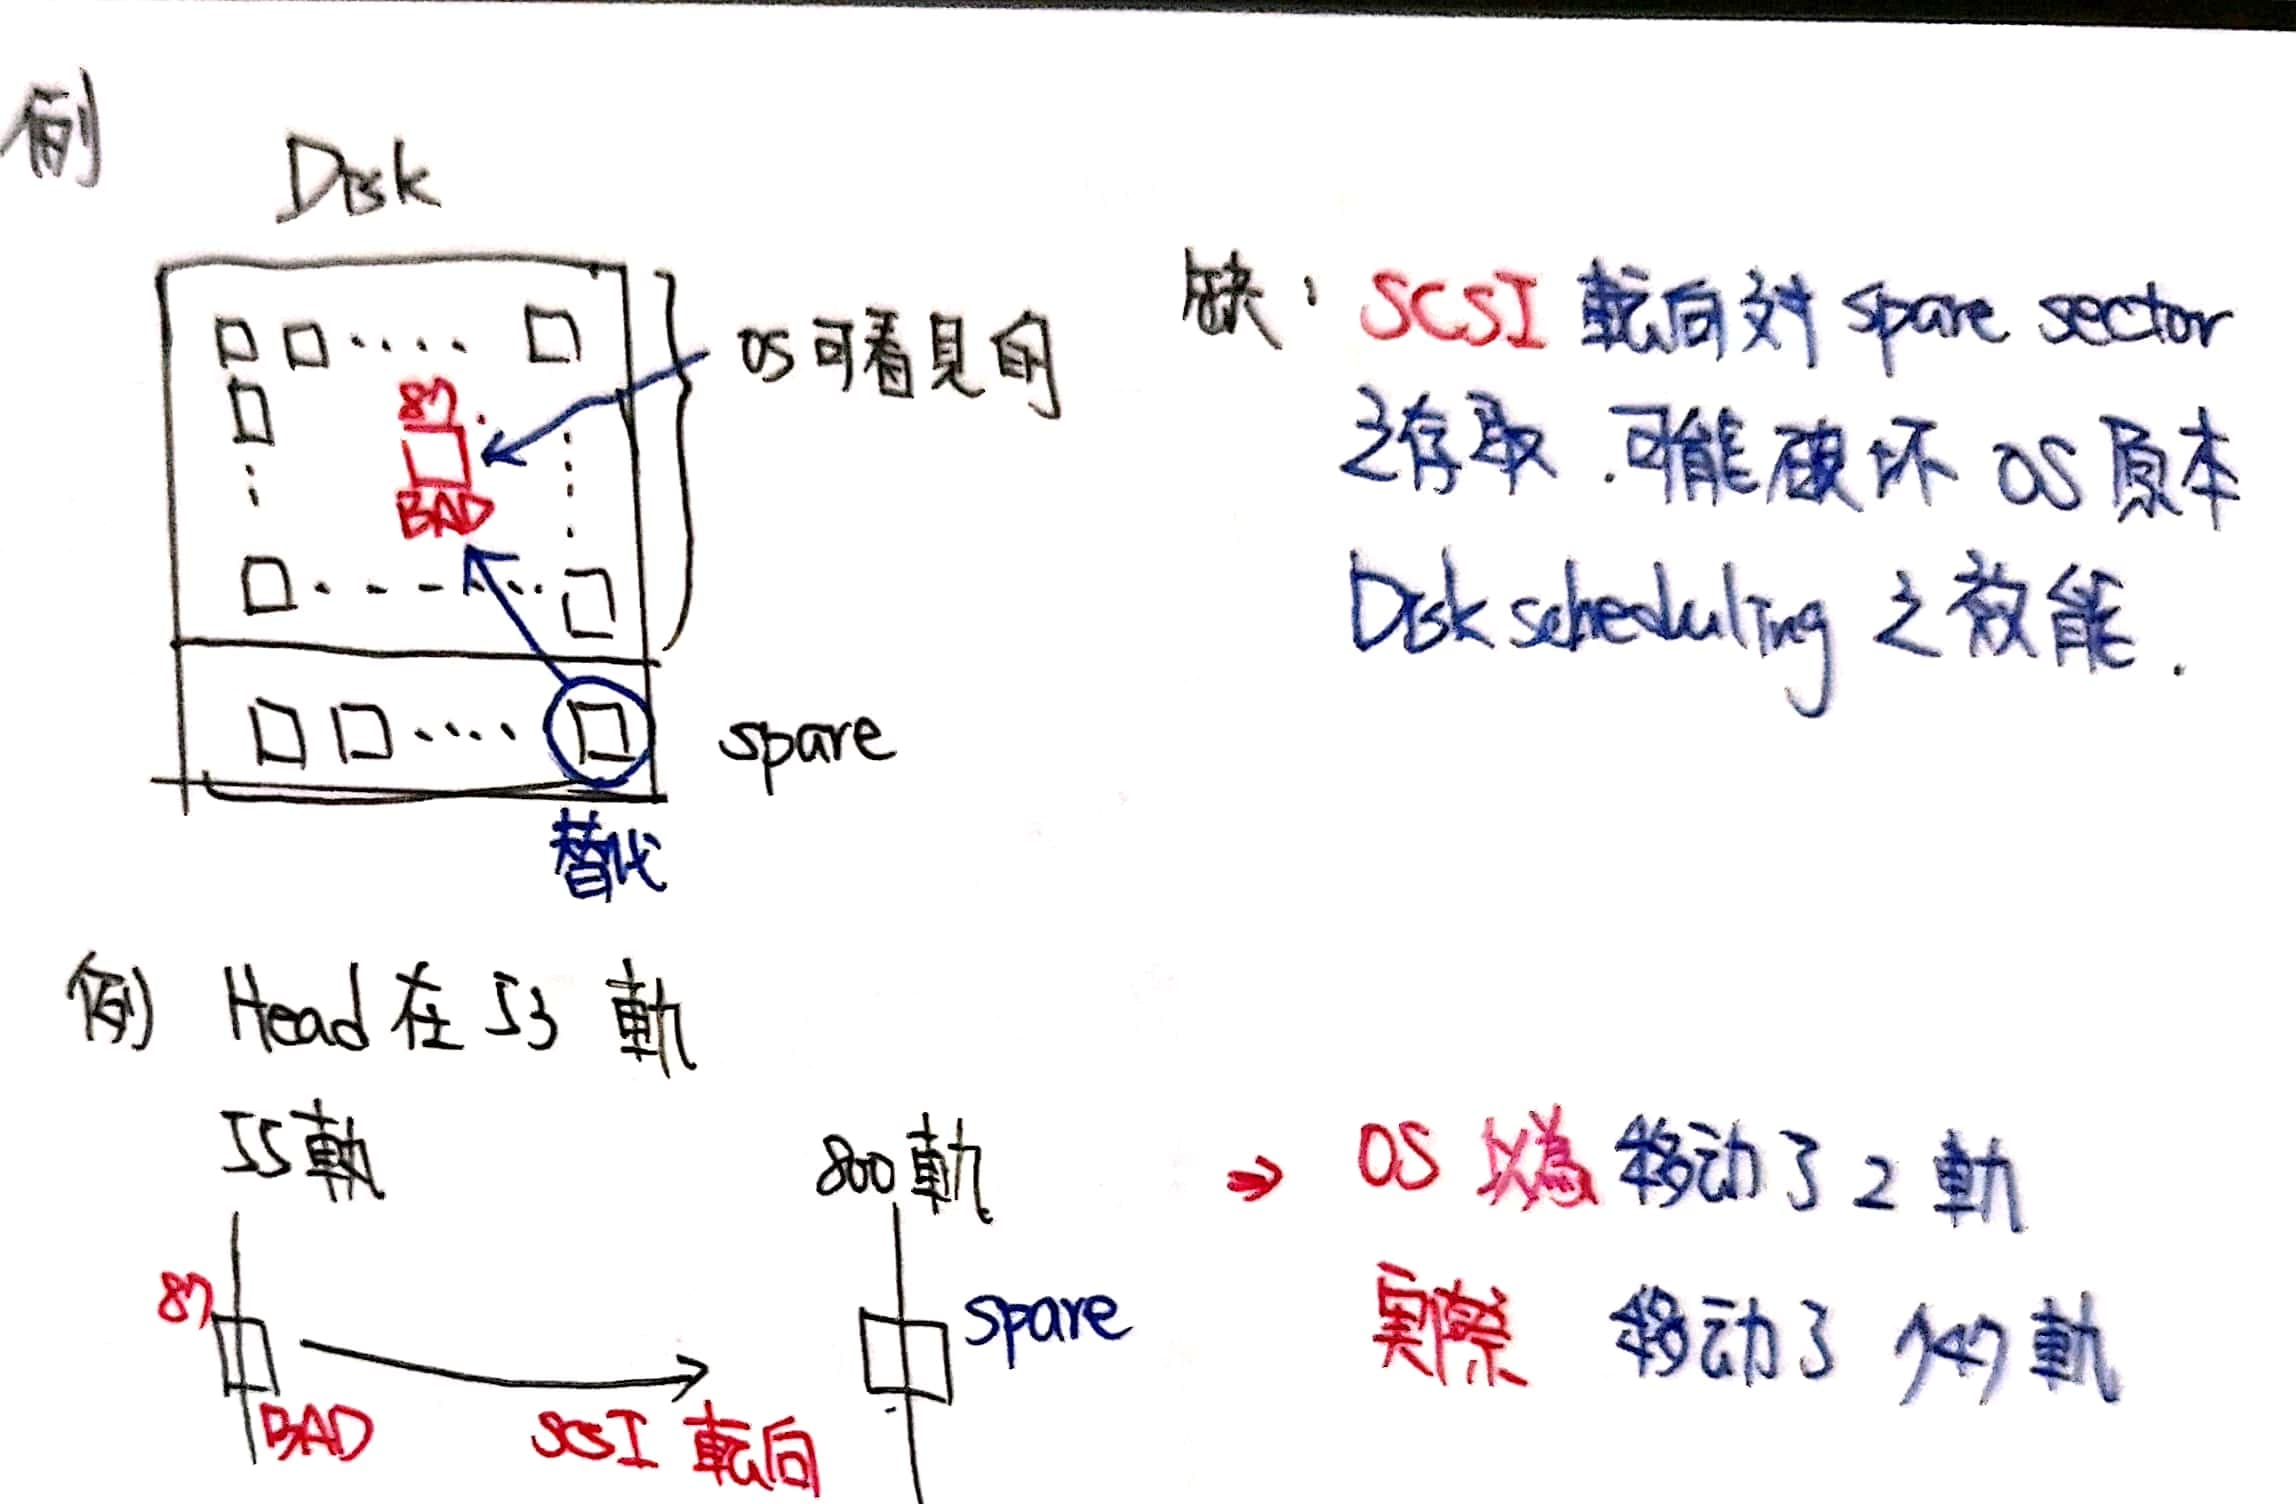 例
Disk
OS可看見的
87
BAD
spare
替代
缺：SCSI 転向対 spare sector
之存取．可能破坏 OS 原本
Disk scheduling 之效能．
例 Head在 53 軌
55軌
800軌
87
BAD
SCSI 転向
spare
⇒ OS 以為 移动了 2 軌
実際 移动了 747 軌